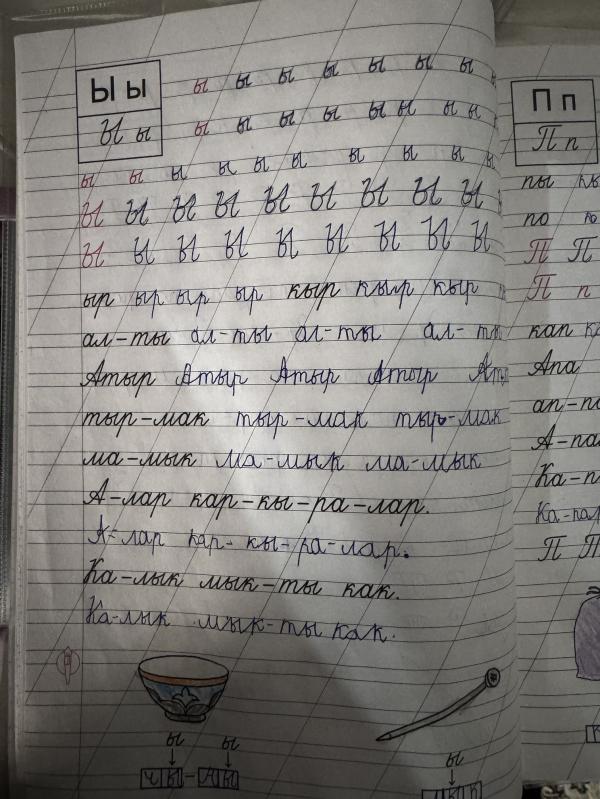 Ы ы
Ы ы
ы ы ы ы ы ы ы
ы ы ы ы ы ы ы ы ы
ы ы ы ы ы ы ы ы ы ы
Ы Ы Ы Ы Ы Ы Ы Ы Ы
Ы Ы Ы Ы Ы Ы Ы Ы Ы
ыр ыр ыр ыр кыр кыр кыр
ал-ты ал-ты ал-ты ал-ты
Атыр Атыр Атыр Атыр Аты
тыр-мак тыр-мак тыр-мак
ма-мык ма-мык ма-мык
А-лар кар-кы-ра-лар.
А-лар кар-кы-ра-лар.
Ка-лык мык-ты как.
Ка-лык мык-ты как.
ы ы
ы
П п
П п
пы
по
П П
П п
кап
Апа
ап-
А-па
Ка-п
Ка-па
П